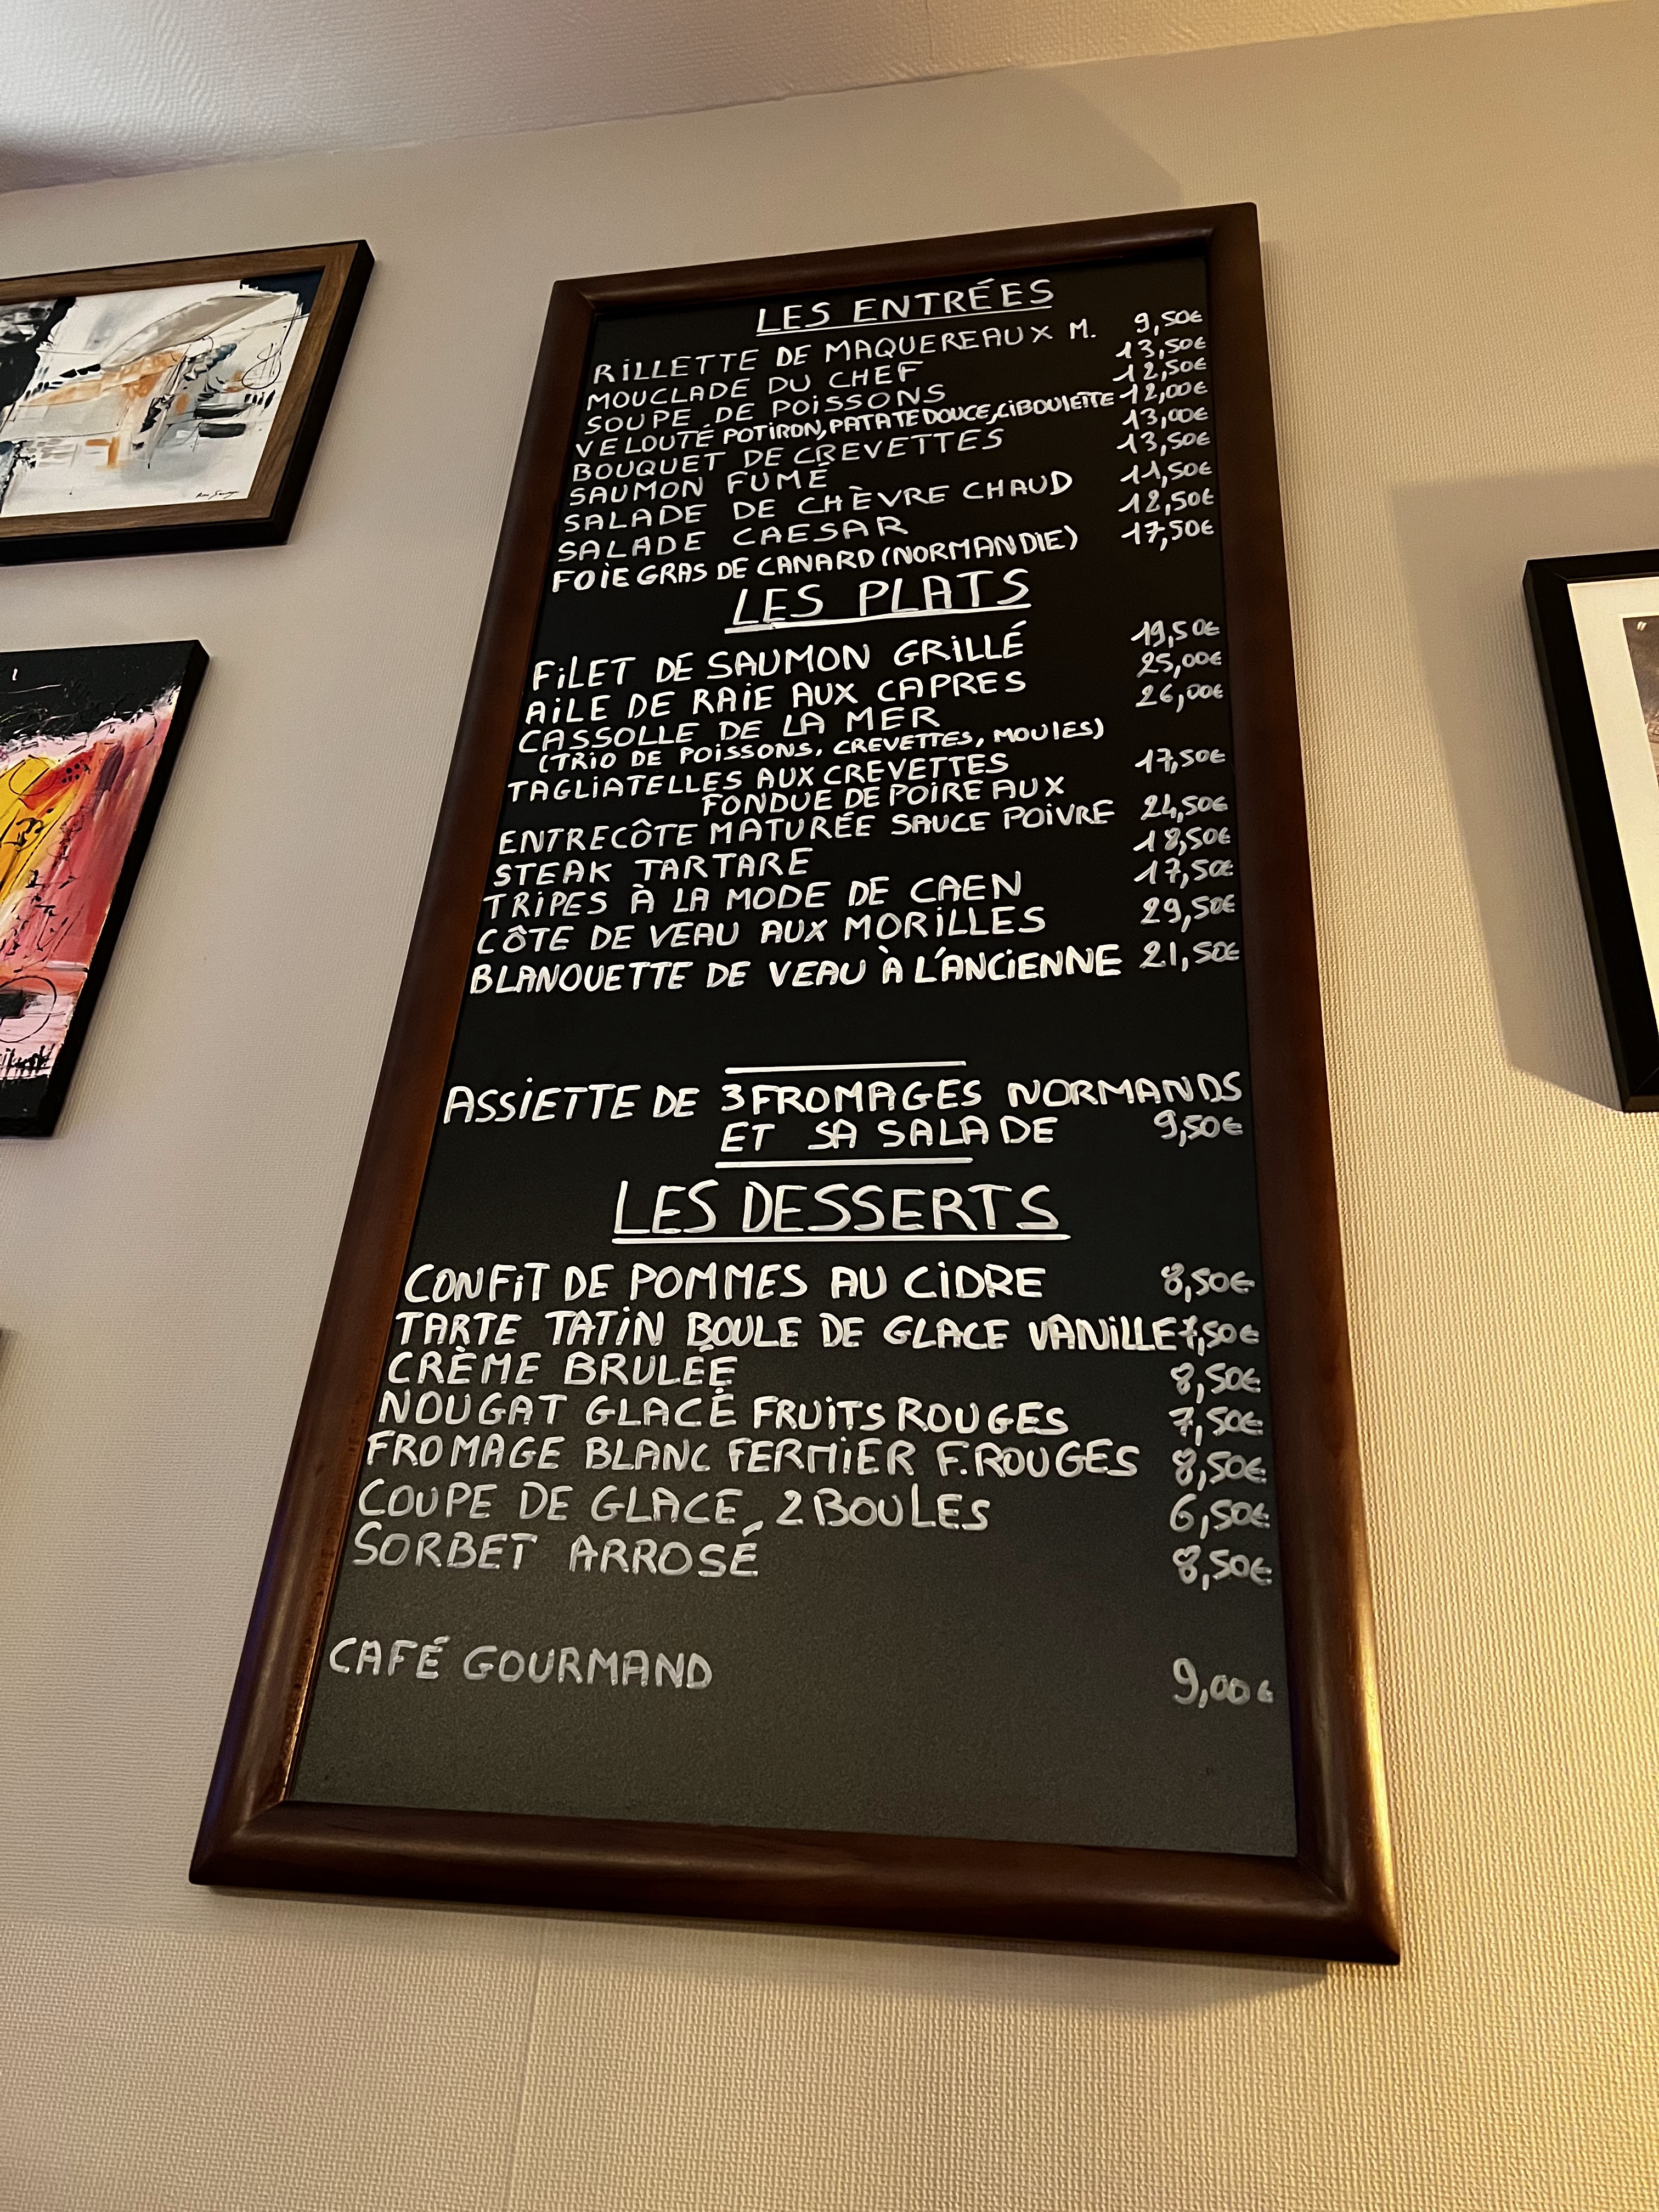 LES ENTRÉES
RILLETTE DE MAQUEREAUX M. 9,50€
MOUCLADE DU CHEF 13,50€
SOUPE DE POISSONS 12,50€
VELOUTÉ POTIRON, PATATE DOUCE, CIBOULETTE 12,00€
BOUQUET DE CREVETTES 13,00€
SAUMON FUMÉ 13,50€
SALADE DE CHÈVRE CHAUD 11,50€
SALADE CAESAR 12,50€
FOIE GRAS DE CANARD (NORMANDIE) 17,50€
LES PLATS
FILET DE SAUMON GRILLÉ 19,50€
AILE DE RAIE AUX CAPRES 25,00€
CASSOLLE DE LA MER 26,00€
(TRIO DE POISSONS, CREVETTES, MOULES)
TAGLIATELLES AUX CREVETTES 17,50€
FONDUE DE POIREAUX
ENTRECÔTE MATURÉE SAUCE POIVRE 24,50€
STEAK TARTARE 18,50€
TRIPES À LA MODE DE CAEN 17,50€
CÔTE DE VEAU AUX MORILLES 29,50€
BLANQUETTE DE VEAU À L'ANCIENNE 21,50€
ASSIETTE DE 3 FROMAGES NORMANDS
ET SA SALADE 9,50€
LES DESSERTS
CONFIT DE POMMES AU CIDRE 8,50€
TARTE TATIN BOULE DE GLACE VANILLE 7,50€
CRÈME BRULÉE 8,50€
NOUGAT GLACÉ FRUITS ROUGES 7,50€
FROMAGE BLANC FERMIER F.ROUGES 8,50€
COUPE DE GLACE, 2 BOULES 6,50€
SORBET ARROSÉ 8,50€
CAFÉ GOURMAND 9,00€